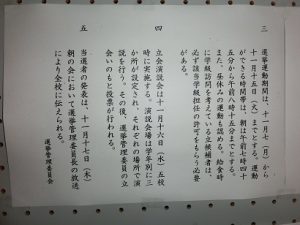 三　選挙運動期間は、十一月七日（月）から
十一月十五日（火）までとする。運動
ができる時間帯は、朝は午前七時四十
五分から午前八時十五分までとする。
また、昼休みの運動も認める。給食時
に学級訪問を考えている立候補者は、
必ず該当学級担任の許可をもらう必要
がある。
四　立会演説会は十一月十六日（水）五校
時に実施する。演説会場は学年別に三
か所が設定され、それぞれの場所で演
説を行う。その後、選挙管理委員の立
会いのもと投票が行われる。
五　当選者の発表は、十一月十七日（木）
朝の会において選挙管理委員長の放送
により全校に伝えられる。
選挙管理委員会